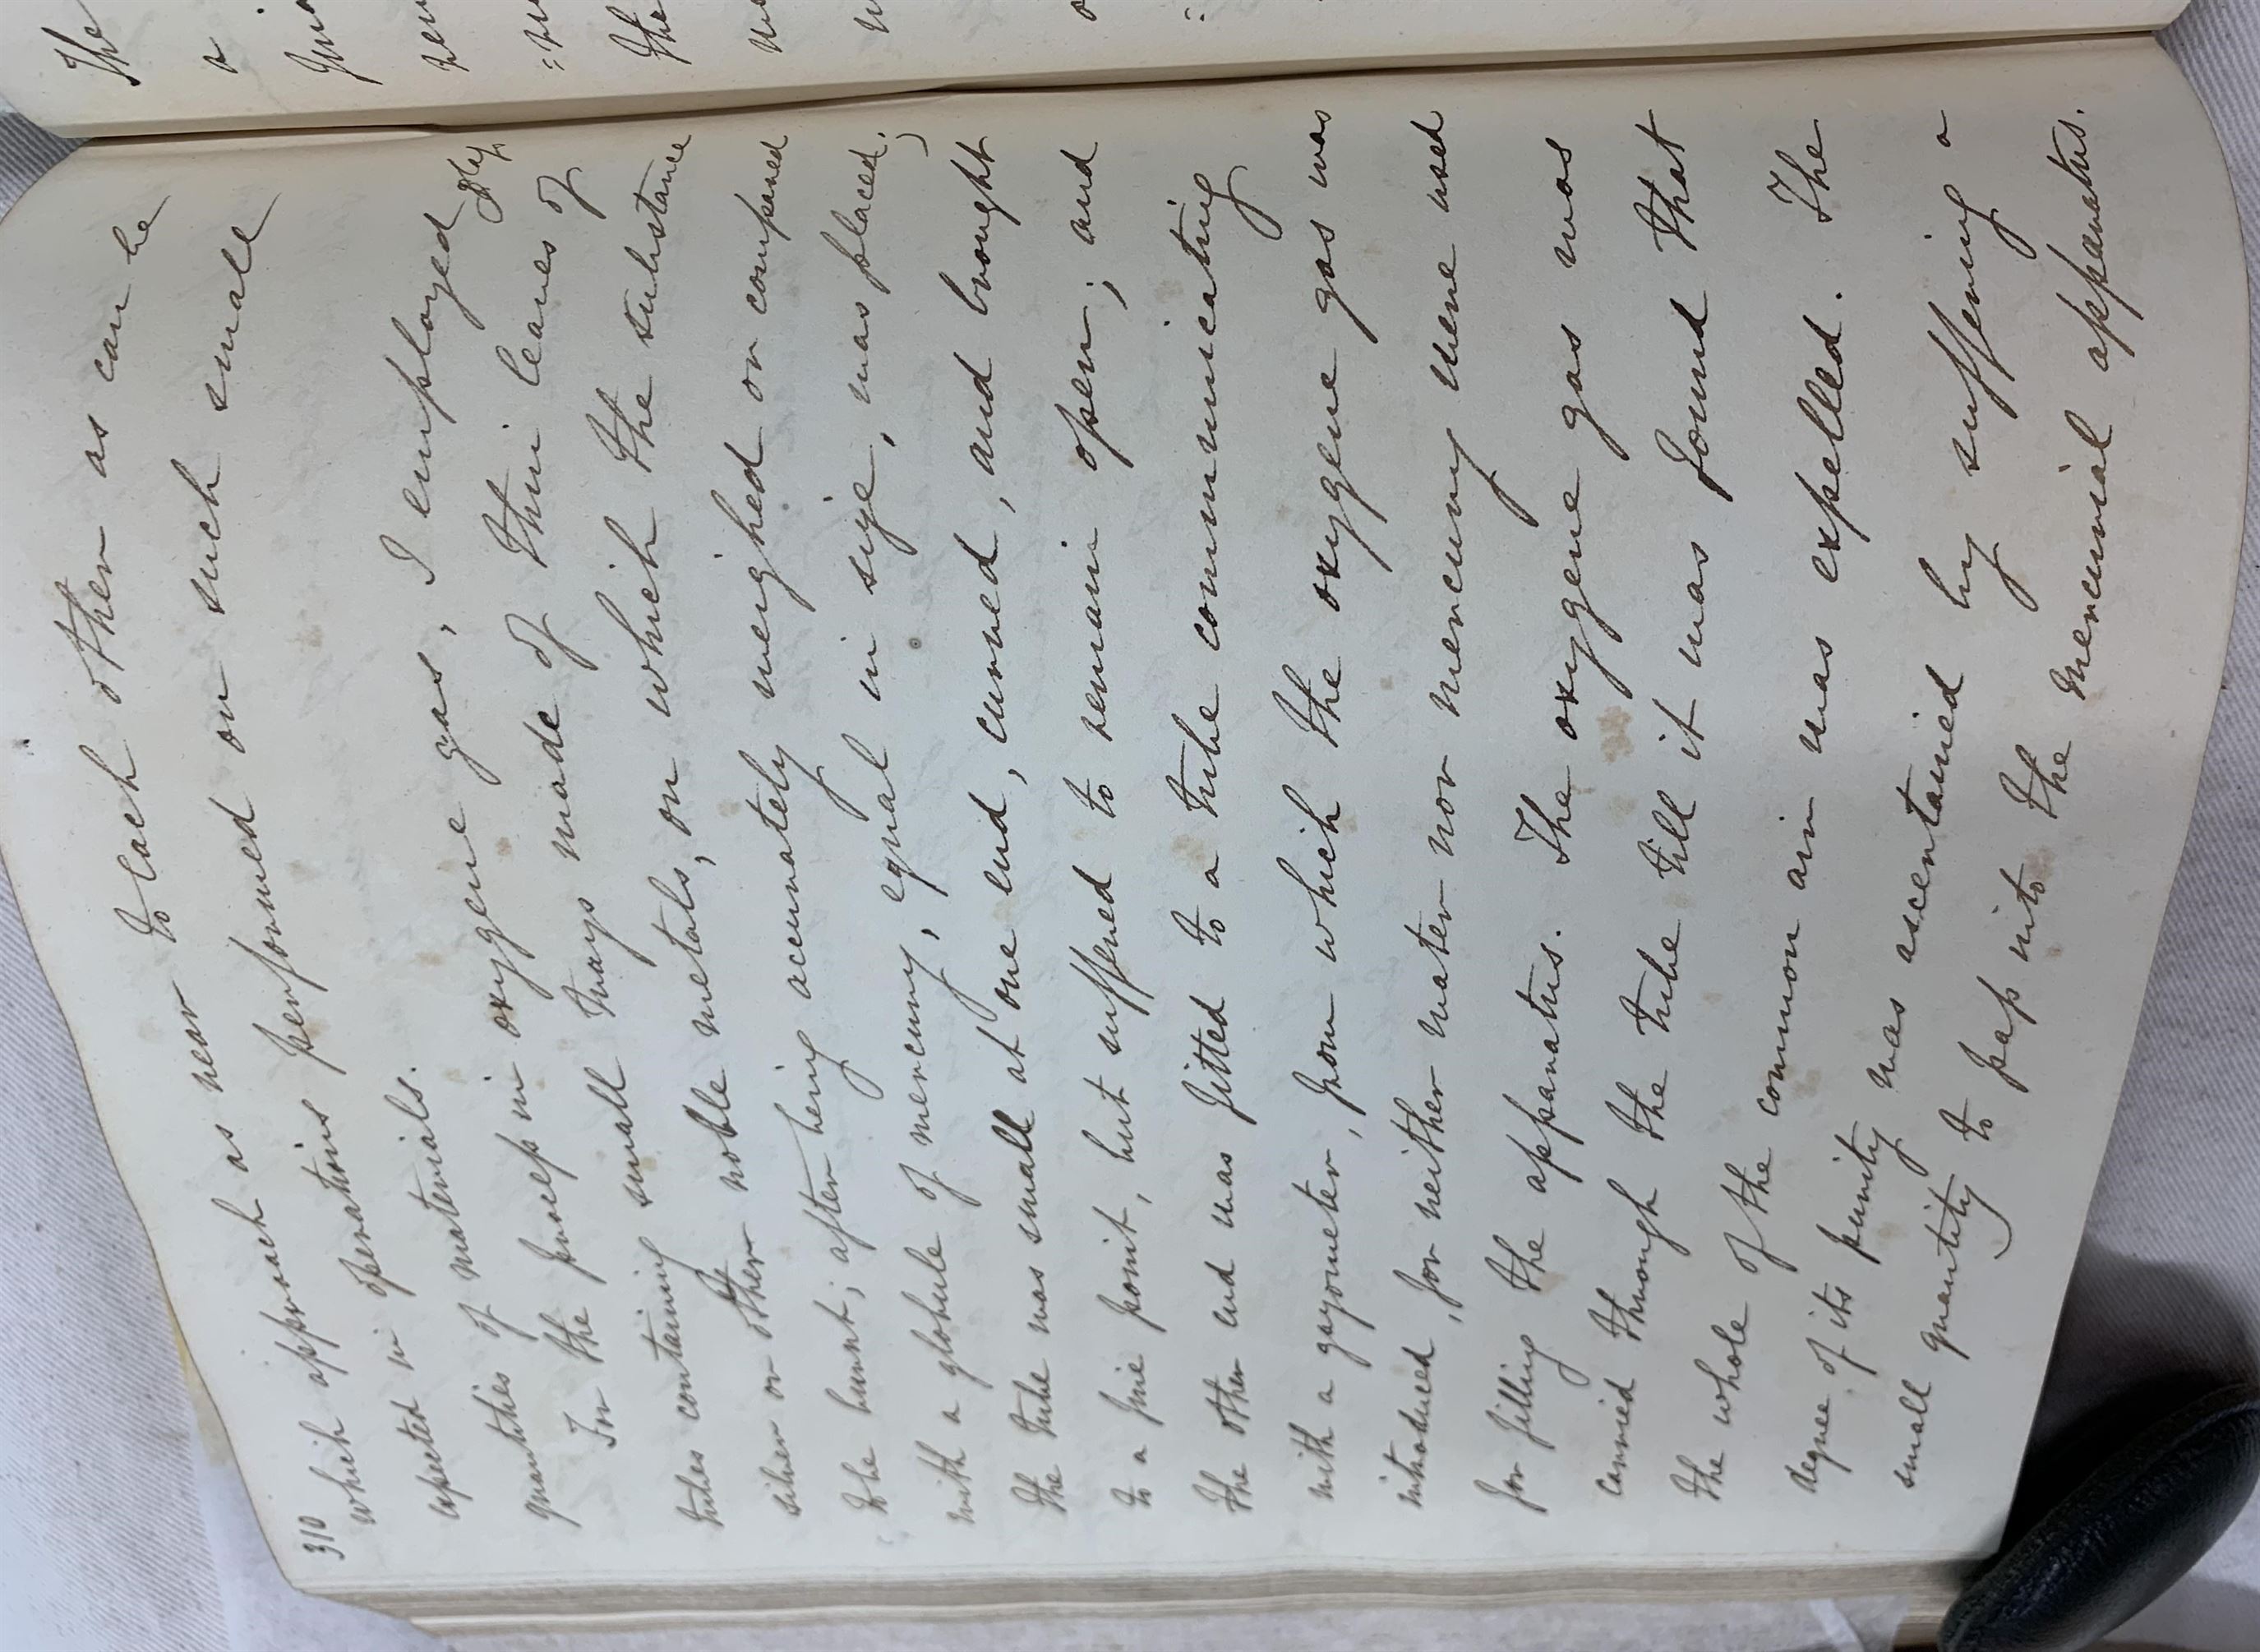 310
which approach as near to each other as can be
expected in operations performed on such small
quantities of materials.
For the process in oxygene gas, I employed glass
tubes containing small trays made of thin leaves of
silver or other noble metals, on which the substance
to be burnt; after being accurately weighed or compared
with a globule of mercury, equal in size, was placed;
the tube was small at one end, curved, and brought
to a fine point, but suffered to remain open; and
the other end was fitted to a tube communicating
with a gazometer, from which the oxygene gas was
introduced, for neither water nor mercury were used
for filling the apparatus. The oxygene gas was
carried through the tube till it was found that
the whole of the common air was expelled. The
degree of its purity was ascertained by suffering a
small quantity to pass into the mercurial apparatus.
The
a
the